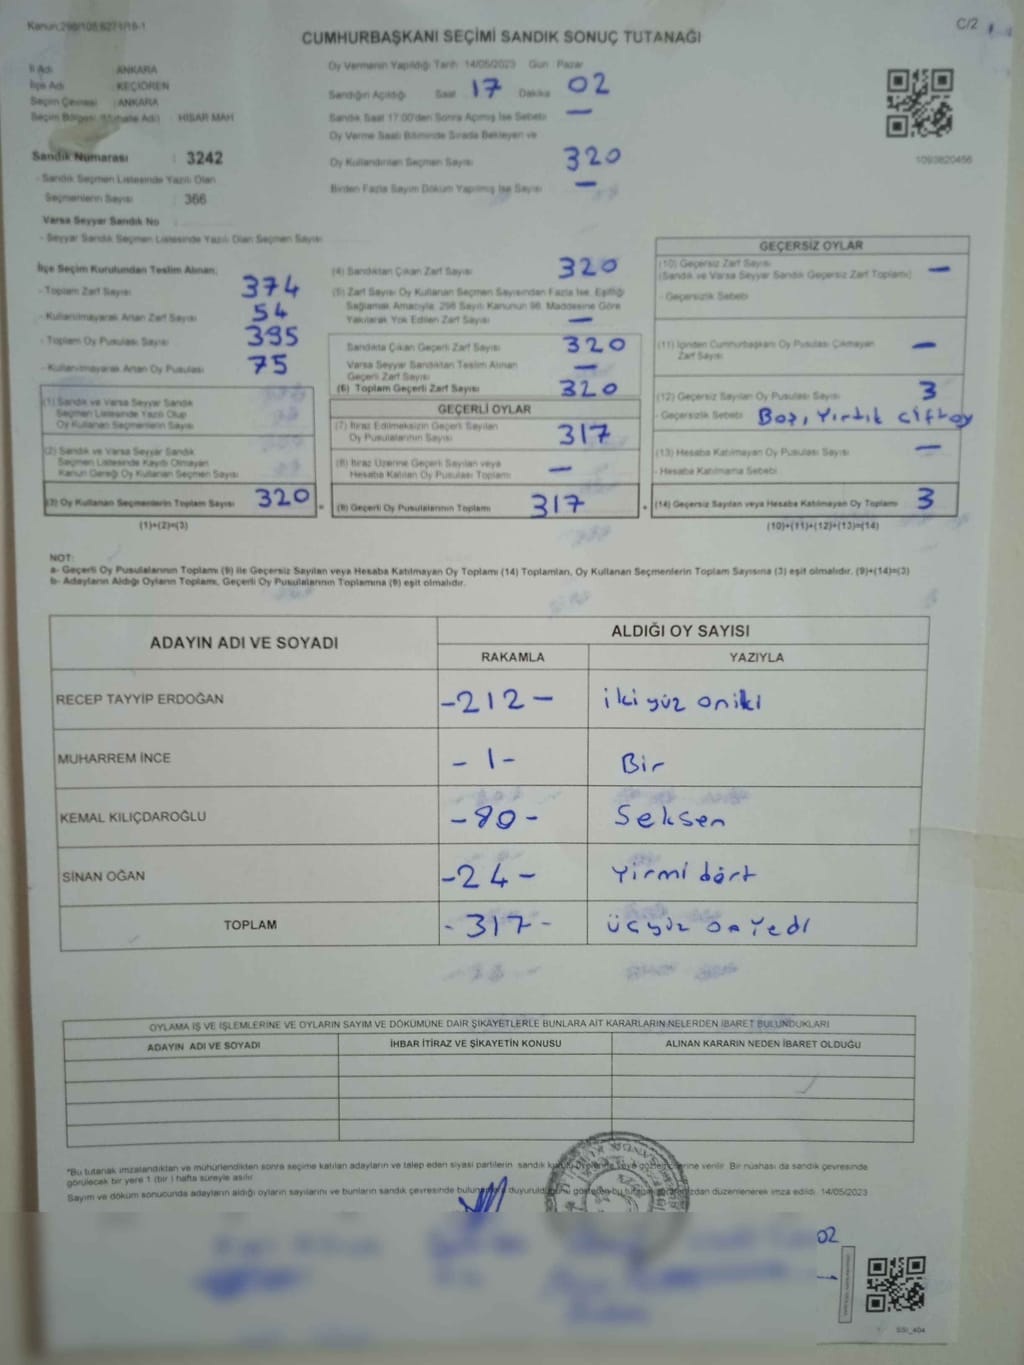 Kanun:298/105,6271/19-1
C/2
CUMHURBAŞKANI SEÇİMİ SANDIK SONUÇ TUTANAĞI
İl Adı : ANKARA
İlçe Adı : KEÇİÖREN
Seçim Çevresi : ANKARA
Seçim Bölgesi (Mahalle Adı) : HİSAR MAH
Sandık Numarası : 3242
- Sandık Seçmen Listesinde Yazılı Olan
Seçmenlerin Sayısı : 366
Varsa Seyyar Sandık No
- Seyyar Sandık Seçmen Listesinde Yazılı Olan Seçmen Sayısı
Oy Vermenin Yapıldığı Tarih 14/05/2023 Gün Pazar
Sandığın Açıldığı Saat 17 Dakika 02
Sandık Saat 17:00'den Sonra Açılmış İse Sebebi —
Oy Verme Saati Bitiminde Sırada Bekleyen ve
Oy Kullandırılan Seçmen Sayısı 320
Birden Fazla Sayım Döküm Yapılmış İse Sayısı —
1093820456
İlçe Seçim Kurulundan Teslim Alınan;
- Toplam Zarf Sayısı 374
- Kullanılmayarak Artan Zarf Sayısı 54
- Toplam Oy Pusulası Sayısı 395
- Kullanılmayarak Artan Oy Pusulası 75
(1) Sandık ve Varsa Seyyar Sandık
Seçmen Listesinde Yazılı Olup
Oy Kullanan Seçmenlerin Sayısı
(2) Sandık ve Varsa Seyyar Sandık
Seçmen Listesinde Kayıtlı Olmayan
Kanun Gereği Oy Kullanan Seçmen Sayısı
(3) Oy Kullanan Seçmenlerin Toplam Sayısı 320
(1)+(2)=(3)
(4) Sandıktan Çıkan Zarf Sayısı 320
(5) Zarf Sayısı Oy Kullanan Seçmen Sayısından Fazla İse, Eşitliği
Sağlamak Amacıyla, 298 Sayılı Kanunun 98. Maddesine Göre
Yakılarak Yok Edilen Zarf Sayısı —
Sandıkta Çıkan Geçerli Zarf Sayısı 320
Varsa Seyyar Sandıktan Teslim Alınan
Geçerli Zarf Sayısı —
(6) Toplam Geçerli Zarf Sayısı 320
GEÇERLİ OYLAR
(7) İtiraz Edilmeksizin Geçerli Sayılan
Oy Pusulalarının Sayısı 317
(8) İtiraz Üzerine Geçerli Sayılan veya
Hesaba Katılan Oy Pusulası Toplamı —
= (9) Geçerli Oy Pusulalarının Toplamı 317
GEÇERSİZ OYLAR
(10) Geçersiz Zarf Sayısı —
(Sandık ve Varsa Seyyar Sandık Geçersiz Zarf Toplamı)
- Geçersizlik Sebebi
(11) İçinden Cumhurbaşkanı Oy Pusulası Çıkmayan
Zarf Sayısı —
(12) Geçersiz Sayılan Oy Pusulası Sayısı 3
- Geçersizlik Sebebi Boş, Yırtık Çift oy
(13) Hesaba Katılmayan Oy Pusulası Sayısı —
- Hesaba Katılmama Sebebi
+ (14) Geçersiz Sayılan veya Hesaba Katılmayan Oy Toplamı 3
(10)+(11)+(12)+(13)=(14)
NOT:
a- Geçerli Oy Pusulalarının Toplamı (9) ile Geçersiz Sayılan veya Hesaba Katılmayan Oy Toplamı (14) Toplamları, Oy Kullanan Seçmenlerin Toplam Sayısına (3) eşit olmalıdır. (9)+(14)=(3)
b- Adayların Aldığı Oyların Toplamı, Geçerli Oy Pusulalarının Toplamına (9) eşit olmalıdır.
ADAYIN ADI VE SOYADI
ALDIĞI OY SAYISI
RAKAMLA YAZIYLA
RECEP TAYYİP ERDOĞAN -212- iki yüz oniki
MUHARREM İNCE -1- Bir
KEMAL KILIÇDAROĞLU -80- Seksen
SİNAN OĞAN -24- Yirmi dört
TOPLAM -317- üçyüz on Yedi
OYLAMA İŞ VE İŞLEMLERİNE VE OYLARIN SAYIM VE DÖKÜMÜNE DAİR ŞİKAYETLERLE BUNLARA AİT KARARLARIN NELERDEN İBARET BULUNDUKLARI
ADAYIN ADI VE SOYADI İHBAR İTİRAZ VE ŞİKAYETİN KONUSU ALINAN KARARIN NEDEN İBARET OLDUĞU
*Bu tutanak imzalandıktan ve mühürlendikten sonra seçime katılan adayların ve talep eden siyasi partilerin sandık verilir. Bir nüshası da sandık çevresinde
görülecek bir yere 1 (bir) hafta süreyle asılır.
Sayım ve döküm sonucunda adayların aldığı oyların sayılarını ve bunların sandık çevresinde düzenlenerek imza edildi. 14/05/2023
02
SSI_404